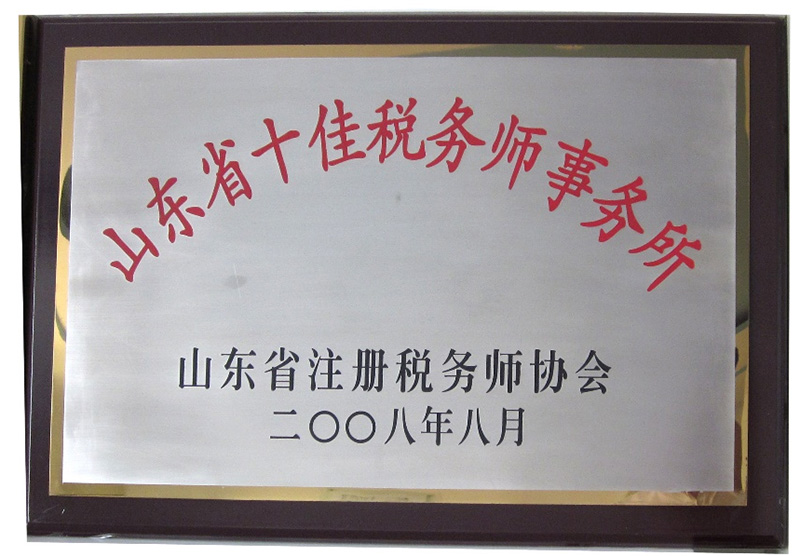 山东省十佳税务师事务所
山东省注册税务师协会
二〇〇八年八月